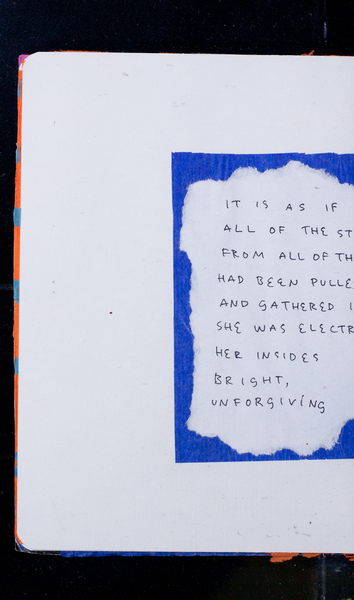 IT IS AS IF
ALL OF THE ST
FROM ALL OF TH
HAD BEEN PULLE
AND GATHERED I
SHE WAS ELECTR
HER INSIDES
BRIGHT,
UNFORGIVING